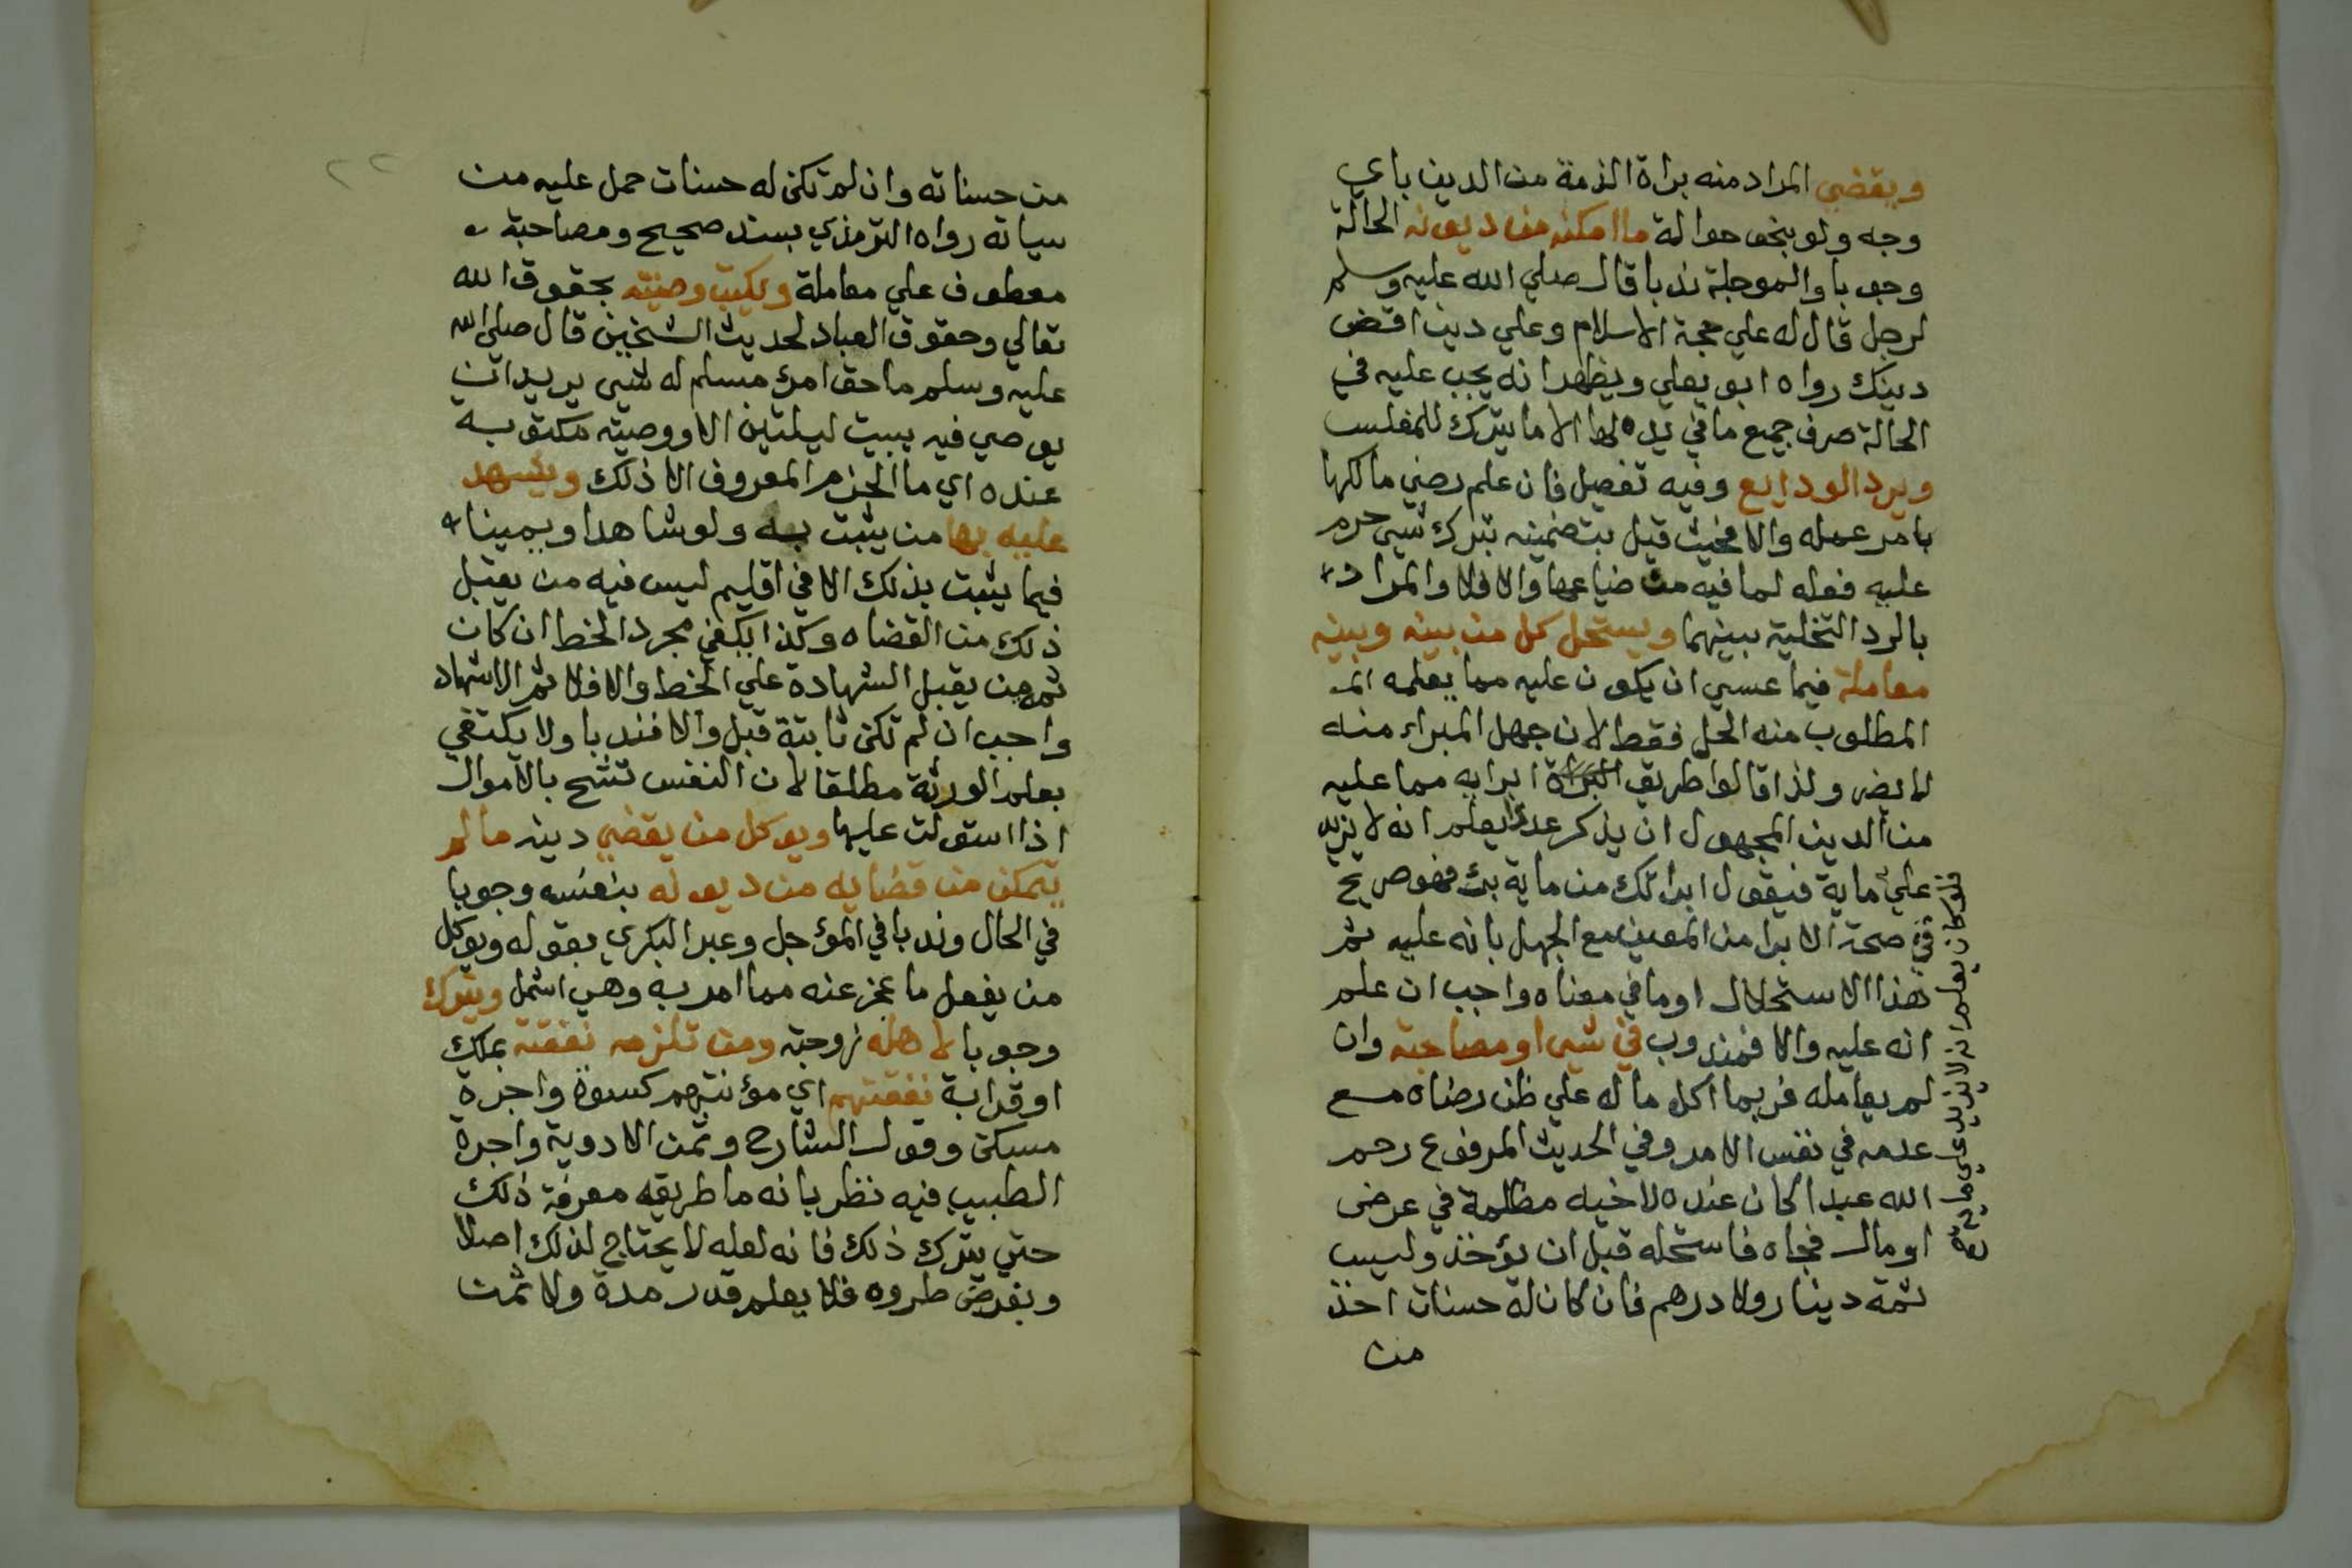 ويقضي المراد منه براة الذمة من الدين باي
وجه ولو بنحو حوالة ما امكنه من ديونه الحالة
وجوبا والموجلة ندبا قال صلي الله عليه وسلم
لرجل قال له علي حجة الاسلام وعلي دين اقض
دينك رواه ابو يعلي ويظهر انه يجب عليه في
الحالة صرف جميع ما في يده لها الا ما يترك للمفلس
ويرد الودايع وفيه تفصيل فان علم رضي مالكها
بامر عمله والا فحيث قيل بتضمينه بترك شيي حرم
عليه فعله لما فيه من ضياعها والا فلا والمراد
بالرد التخلية بينهما ويستحل كل من بينه وبينه
معاملة فيما عسي ان يكون عليه مما يعلمه
المطلوب منه الحل فقط لان جهل المبراء منه
لا يضر ولذا قالوا طريق ابرايه مما عليه
من الدين المجهول ان يذكر عددا يعلم انه لا يزيد
علي ماية فيقول ابراتك من ماية فهو صريح
في صحة الابرا من المعين مع الجهل بانه عليه ثم
هذا الاستحلال او ما في معناه واجب ان علم
انه عليه والا فمندوب في شيي او مصاحبة وان
لم يعامله فربما اكل ماله علي ظن رضاه مع
عدمه في نفس الامر وفي الحديث المرفوع رحم
الله عبدا كان عنده لاخيه مظلمة في عرض
او مال فجاه فاستحله قبل ان يؤخذ وليس
ثمة دينار ولا درهم فان كان له حسنات اخذ
من
فلو كان يعلم انه لا يزيد علي ماية
من حسناته وان لم تكن له حسنات حمل عليه من
سياته رواه الترمذي بسند صحيح ومصاحبة
معطوف علي معاملة ويكتب وصيته بحقوق الله
تعالي وحقوق العباد لحديث الشيخين قال صلي الله
عليه وسلم ما حق امرئ مسلم له شيي يريد ان
يوصي فيه يبيت ليلتين الا ووصيته مكتوبة
عنده اي ما الحزم المعروف الا ذلك ويشهد
عليه بها من يثبت به ولو شاهدا ويمينا
فيما يثبت بذلك الا في اقليم ليس فيه من يقبل
ذلك من القضاه وكذا يكفي مجرد الخط ان كان
ثم من يقبل الشهادة علي الخط والا فلا ثم الاشهاد
واجب ان لم تكن ثابتة قبل والا فندبا ولا يكتفي
بعلم الورثة مطلقا لان النفس تشح بالاموال
اذا استولت عليها ويوكل من يقضي دينه ما لم
يتمكن من قضايه من ديونه بنفسه وجوبا
في الحال وندبا في المؤجل وعبر البكري بقوله ويوكل
من يفعل ما عجز عنه مما امر به وهي اشمل ويترك
وجوبا لاهله زوجته ومن تلزمه نفقته بملك
او قرابة نفقتهم اي مؤنتهم كسوة واجرة
مسكن وقول الشارح وثمن الادوية واجرة
الطبيب فيه نظر بانه ما طريقه معرفة ذلك
حتي يترك ذلك فانه لعله لا يحتاج لذلك اصلا
وبفرض طروه فلا يعلم قدر مدة ولا ثمن
٢٢